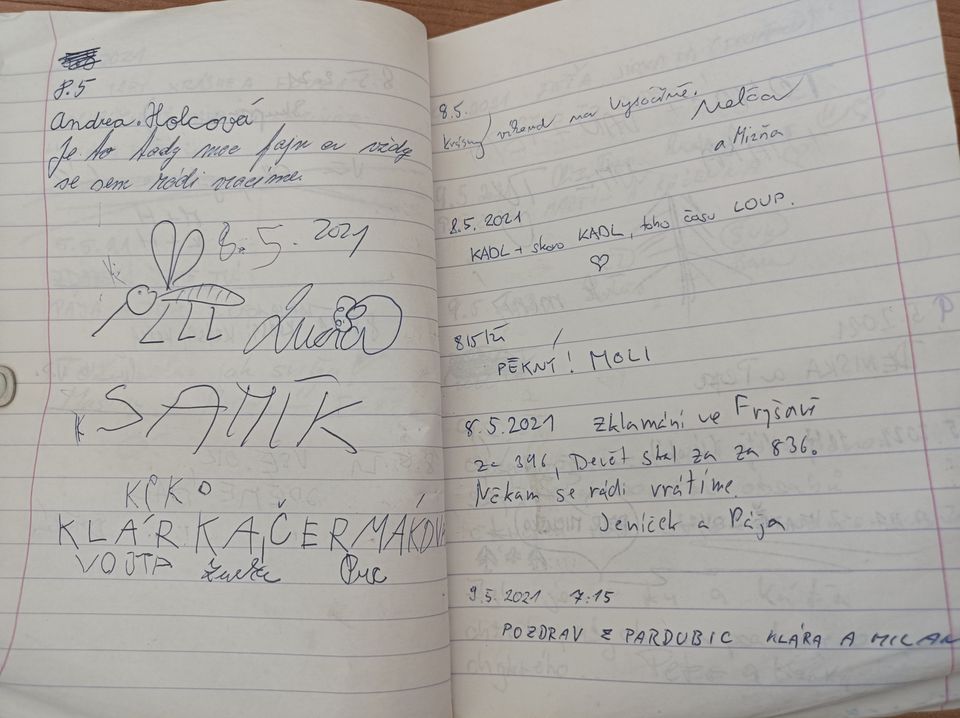 8.5
Andrea Holcová
Je to tady moc fajn a vždy
se sem rádi vracíme.
8. 5. 2021
Lucia
SAMÍK
KIKO
KLÁRKA ČERMÁKOVÁ
VOJTA
8.5.
krásný víkend na Vysočině.
Melča
a Mizňa
8.5. 2021
KADL + skoro KADL, toho času LOUP.
PĚKNÝ! MOLI
8.5.2021 Zklamání ve Fryšavě
za 396, Devět skal za za 836.
Někam se rádi vrátíme.
Jeníček a Pája
9.5.2021 7:15
POZDRAV Z PARDUBIC KLÁRA A MILAN